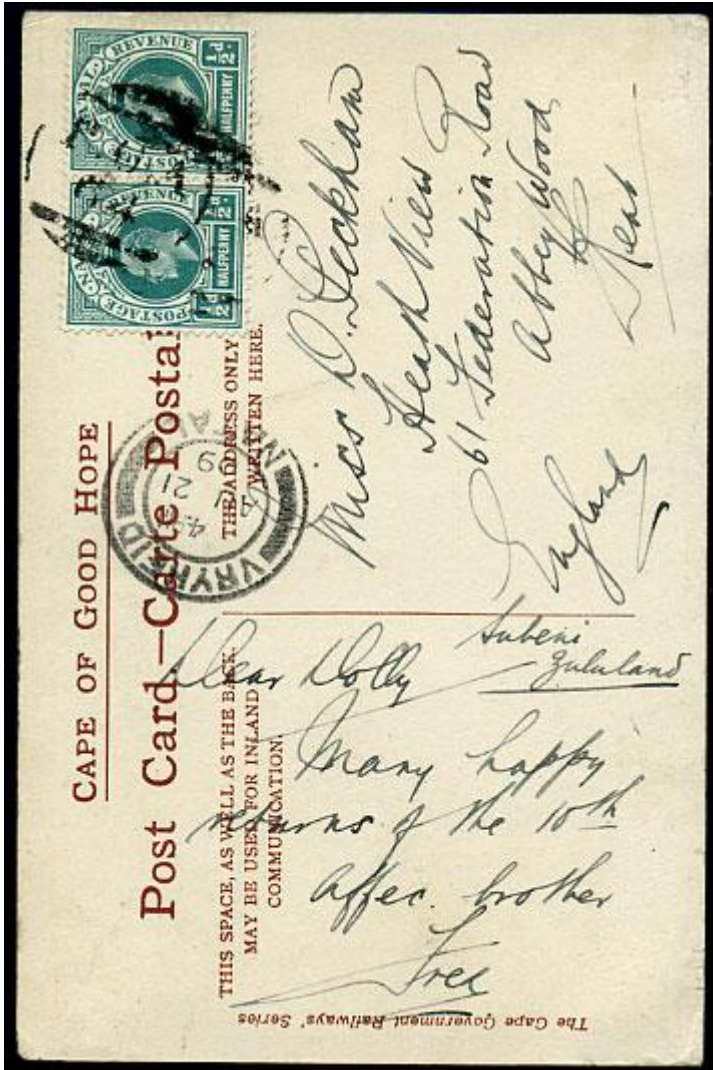 CAPE OF GOOD HOPE
Post Card—Carte Postal
THIS SPACE, AS WELL AS THE BACK,
MAY BE USED FOR INLAND
COMMUNICATION
THE ADDRESS ONLY
WRITTEN HERE.
POSTAGE REVENUE
½d. HALFPENNY
POSTAGE REVENUE
½d. HALFPENNY
VRYHEID
NATAL
AU 21
09
Miss D. Peckham
Heath View
61 Federation Road
Abbey Wood
Kent
England
Zululand
Dear Dolly
Many happy
returns of the 10th
Affec. brother
Fred
The Cape Government Railways' Series